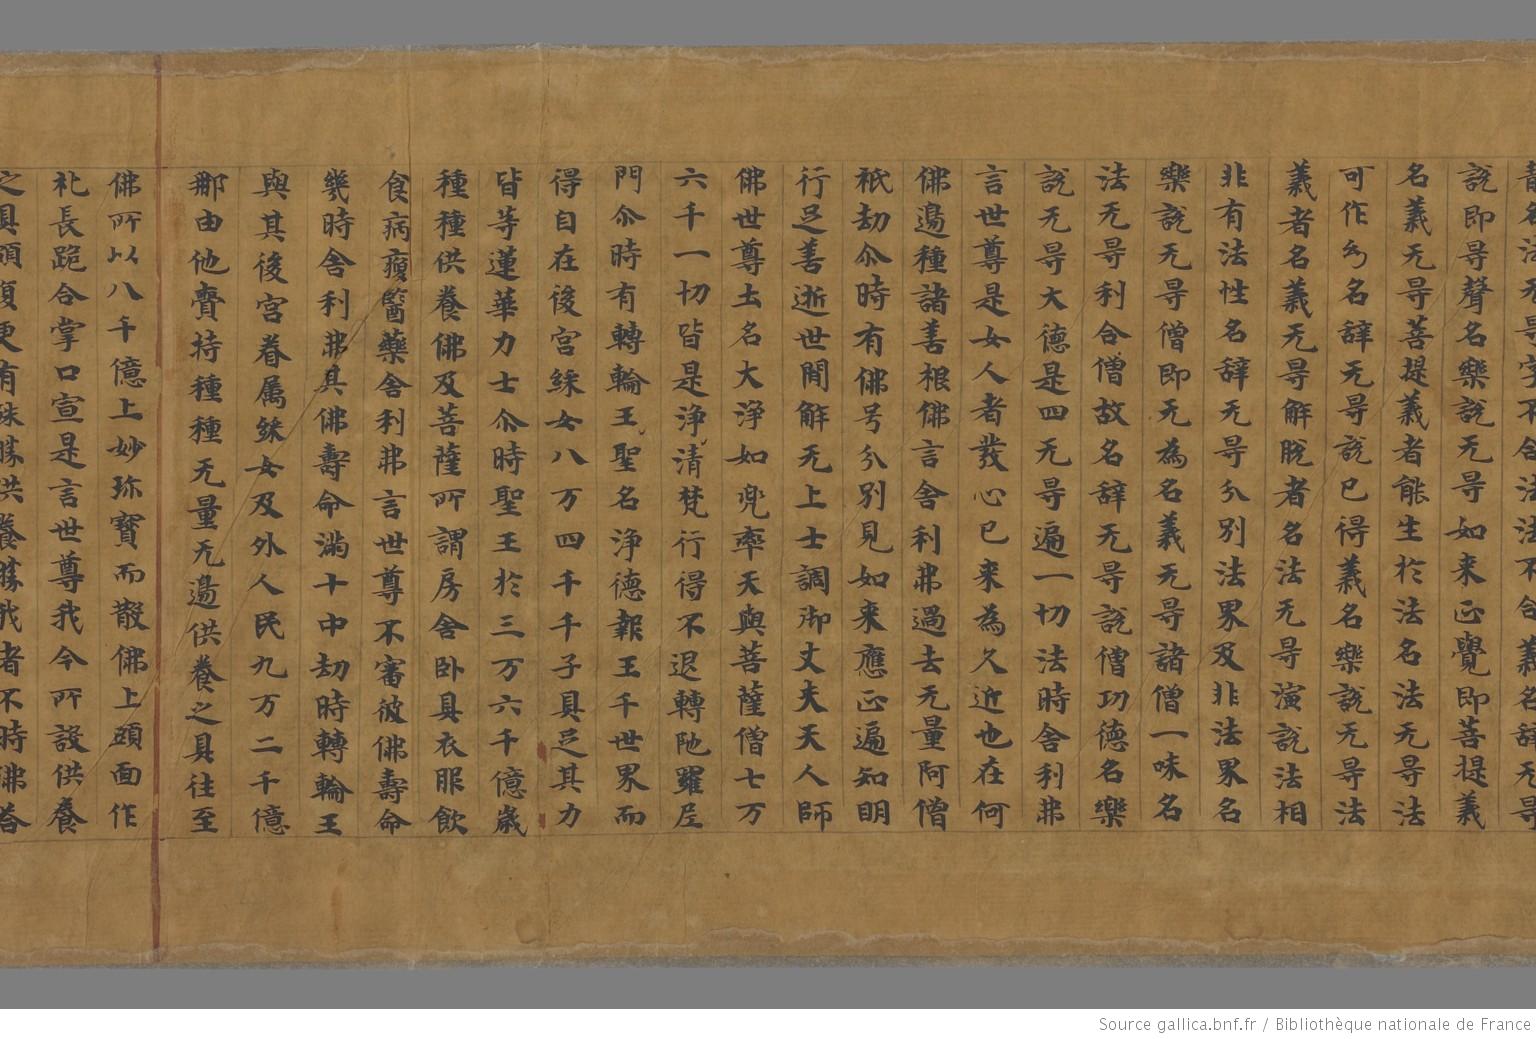 辯名法无㝵字不合法法不合義名辭无㝵
說即㝵聲名樂說无㝵如来正覺即菩提義
名義无㝵菩提義者能生於法名法无㝵法
可作為名辭无㝵說已得義名樂說无㝵法
義者名義无㝵解脫者名法无㝵演說法相
非有法性名辭无㝵分別法界及非法界名
樂說无㝵僧即无為名義无㝵諸僧一味名
法无㝵利合僧故名辭无㝵說僧功德名樂
說无㝵大德是四无㝵遍一切法時舍利弗
言世尊是女人者發心已来為久近也在何
佛邊種諸善根佛言舍利弗過去无量阿僧
祇劫尒時有佛号分別見如来應正遍知明
行足善逝世間解无上士調御丈夫天人師
佛世尊土名大淨如兜率天與菩薩僧七万
六千一切皆是淨清梵行得不退轉陁羅尼
門尒時有轉輪王聖名淨德報王千世界而
得自在後宮婇女八万四千千子具足其力
皆等蓮華力士尒時聖王於三万六千億歲
種種供養佛及菩薩所謂房舍卧具衣服飲
食病瘦醫藥舍利弗言世尊不審彼佛壽命
幾時舍利弗其佛壽命滿十中劫時轉輪王
與其後宮眷屬婇女及外人民九万二千億
那由他賫持種種无量无邊供養之具往至
佛所以八千億上妙珎寶而散佛上頭面作
礼長跪合掌口宣是言世尊我今所設供養
之具頗復更有殊勝供養勝我者不時佛荅
Source gallica.bnf.fr / Bibliothèque nationale de France